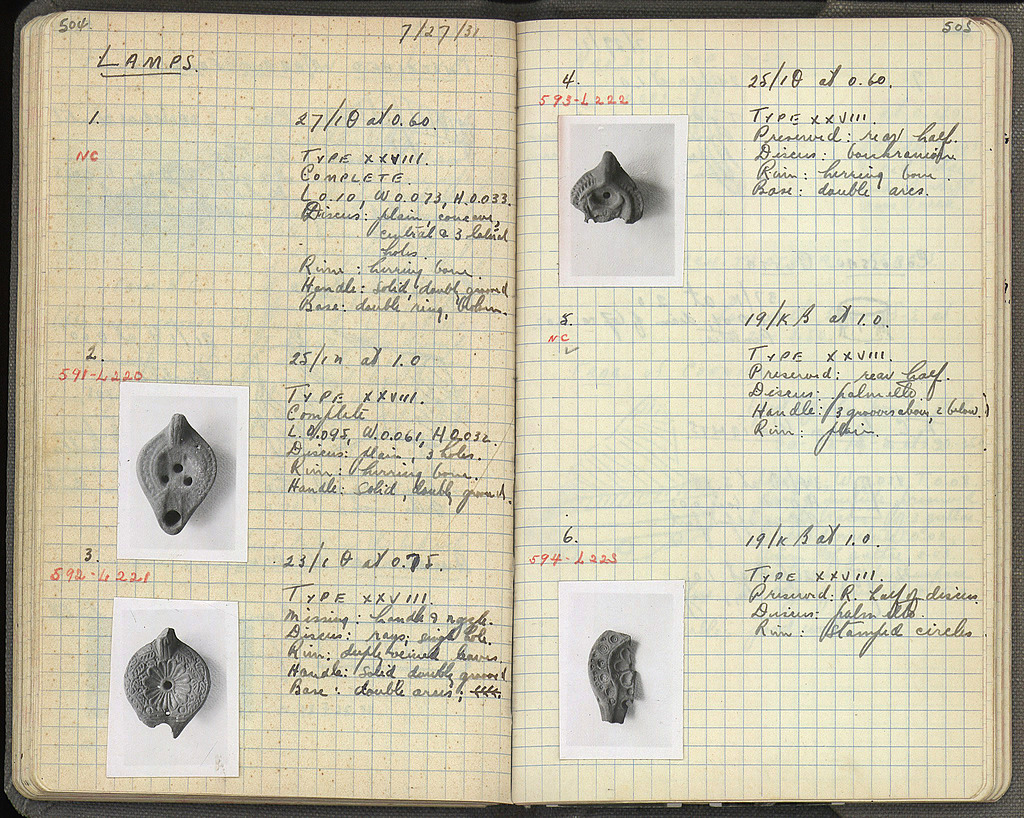 504
7/27/31
LAMPS.
1.
27/ΙΘ at 0.60.
NC
TYPE XXVIII.
COMPLETE.
L 0.10, W 0.073, H. 0.033.
Discus: plain, concave,
central & 3 lateral
holes.
Rim: herring bone.
Handle: solid, double grooved
Base: double ring,
2.
25/ΙΗ at 1.0
591-L220
TYPE XXVIII.
Complete
L. 0.095, W. 0.061, H 0.032.
Discus: plain, 3 holes.
Rim: herring bone.
Handle: solid, double grooved.
3.
23/ΙΘ at 0.75.
592-L221
TYPE XXVIII.
Missing: handle & nozzle.
Discus: rays; single hole
Rim: duple veined leaves
Handle: solid double grooved
Base: double arcs;
505
4.
25/ΙΘ at 0.60.
593-L222
TYPE XXVIII.
Preserved: rear half.
Discus: boukranion
Rim: herring bone.
Base: double arcs.
5.
19/ΚΒ at 1.0.
NC
TYPE XXVIII.
Preserved: rear half.
Discus: palmette.
Handle: 3 grooves above, 2 below.
Rim: plain.
6.
19/ΚΒ at 1.0.
594-L223
TYPE XXVIII.
Preserved: R. half of discus.
Discus: palmette.
Rim: Stamped circles